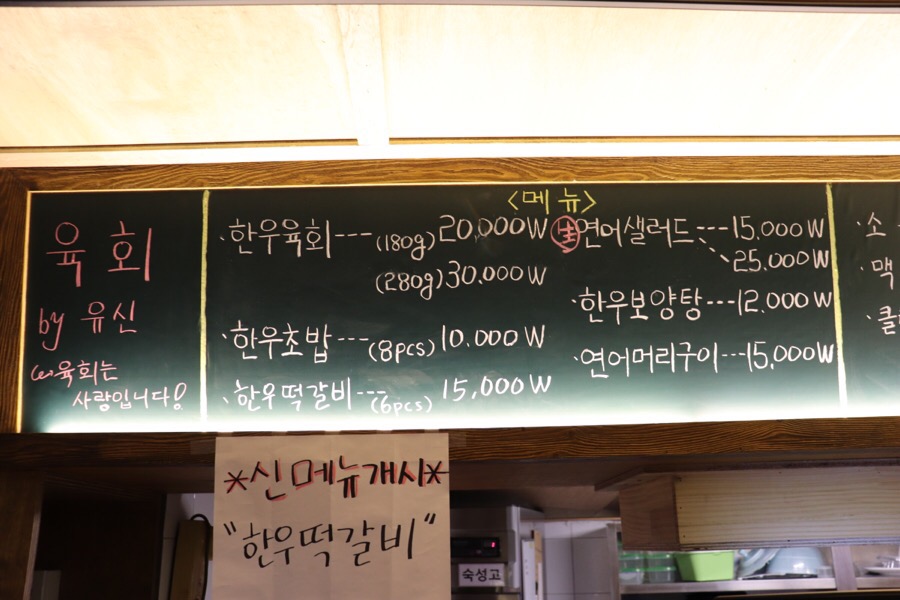 육회
by 유신
육회는
사랑입니다!
<메뉴>
·한우육회---(180g) 20,000W
(280g) 30,000W
·한우초밥---(8pcs) 10,000W
·한우떡갈비---(6pcs) 15,000W
生연어샐러드---15,000W
25,000W
·한우보양탕---12,000W
·연어머리구이---15,000W
·소
·맥
*신메뉴개시*
"한우떡갈비"
숙성고